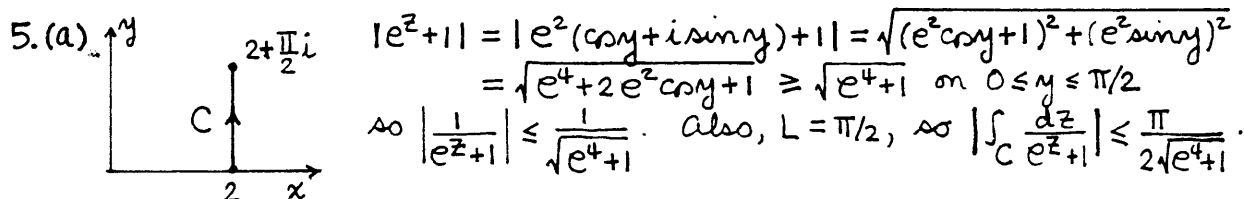 5.(a) y 2+π/2 i |e^z+1| = |e^2(cosy+isiny)+1| = √((e^2cosy+1)^2+(e^2siny)^2)
= √(e^4+2e^2cosy+1) ≥ √(e^4+1) on 0≤y≤π/2
C so |1/(e^z+1)| ≤ 1/√(e^4+1). Also, L=π/2, so |∫_C dz/(e^z+1)| ≤ π/(2√(e^4+1)).
2 x